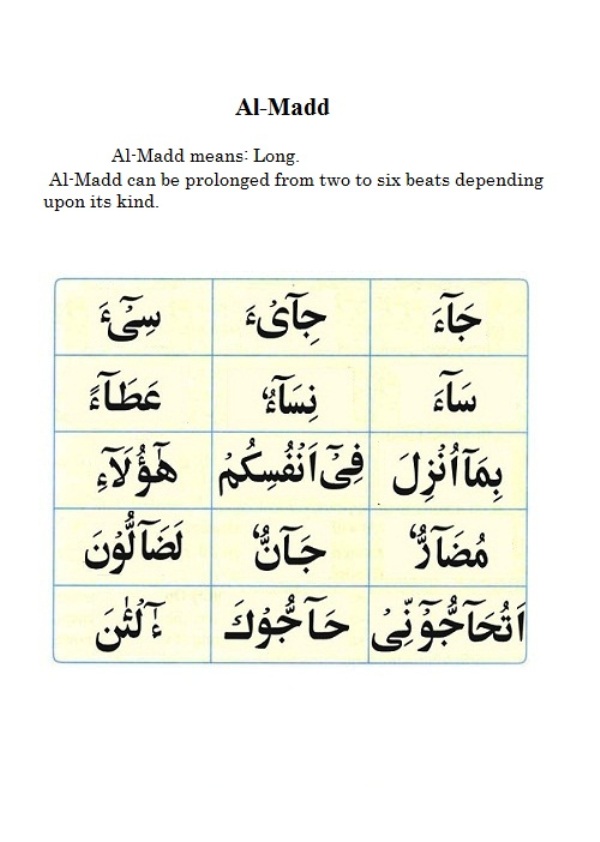 Al-Madd
Al-Madd means: Long.
Al-Madd can be prolonged from two to six beats depending
upon its kind.
جَآءَ جِآیْءَ سِیْٓءَ
سَآءَ نِسَآءٌ عَطَآءً
بِمَآ اُنْزِلَ فِیْٓ اَنْفُسِكُمْ هٰٓؤُلَآءِ
مُضَآرٌّ جَآنٌّ لَضَآلُّوْنَ
اَتُحَآجُّوْٓنِّیْ حَآجُّوْكَ ءٰٓالْـٰٔنَ